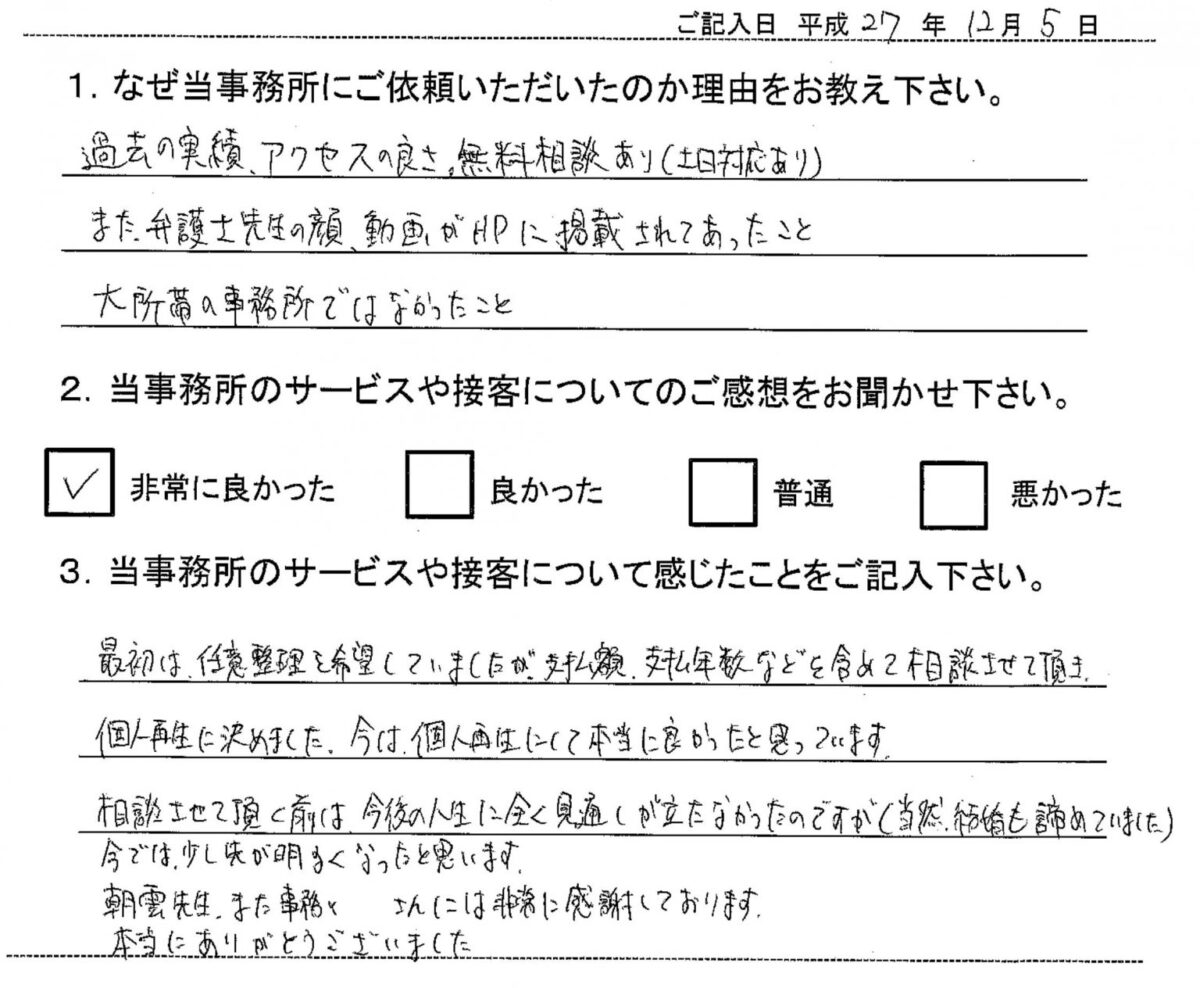 ご記入日 平成 27 年 12月 5 日
1. なぜ当事務所にご依頼いただいたのか理由をお教え下さい。
過去の実績、アクセスの良さ、無料相談あり(土日対応あり)
また、弁護士先生の顔、動画がHPに掲載されてあったこと
大所帯の事務所ではなかったこと
2. 当事務所のサービスや接客についてのご感想をお聞かせ下さい。
✓ 非常に良かった 良かった 普通 悪かった
3. 当事務所のサービスや接客について感じたことをご記入下さい。
最初は、任意整理を希望していましたが、支払額、支払年数などを含めて相談させて頂き、
個人再生に決めました。今は、個人再生にして本当に良かったと思っています。
相談させて頂く前は、今後の人生に全く見通しが立たなかったのですが(当然、結婚も諦めていました)
今では、少し先が明るくなったと思います。
朝雲先生、また事務 さんには非常に感謝しております。
本当にありがとうございました